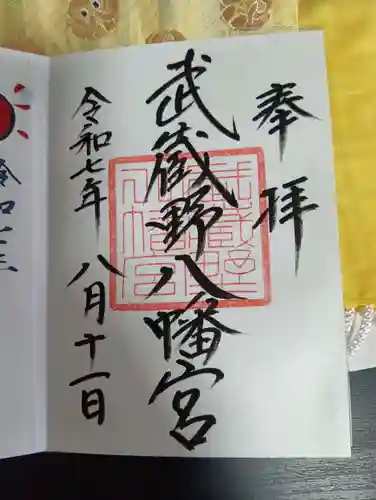 奉拝
武蔵野八幡宮
令和七年八月十一日
武蔵野
八幡宮
令和